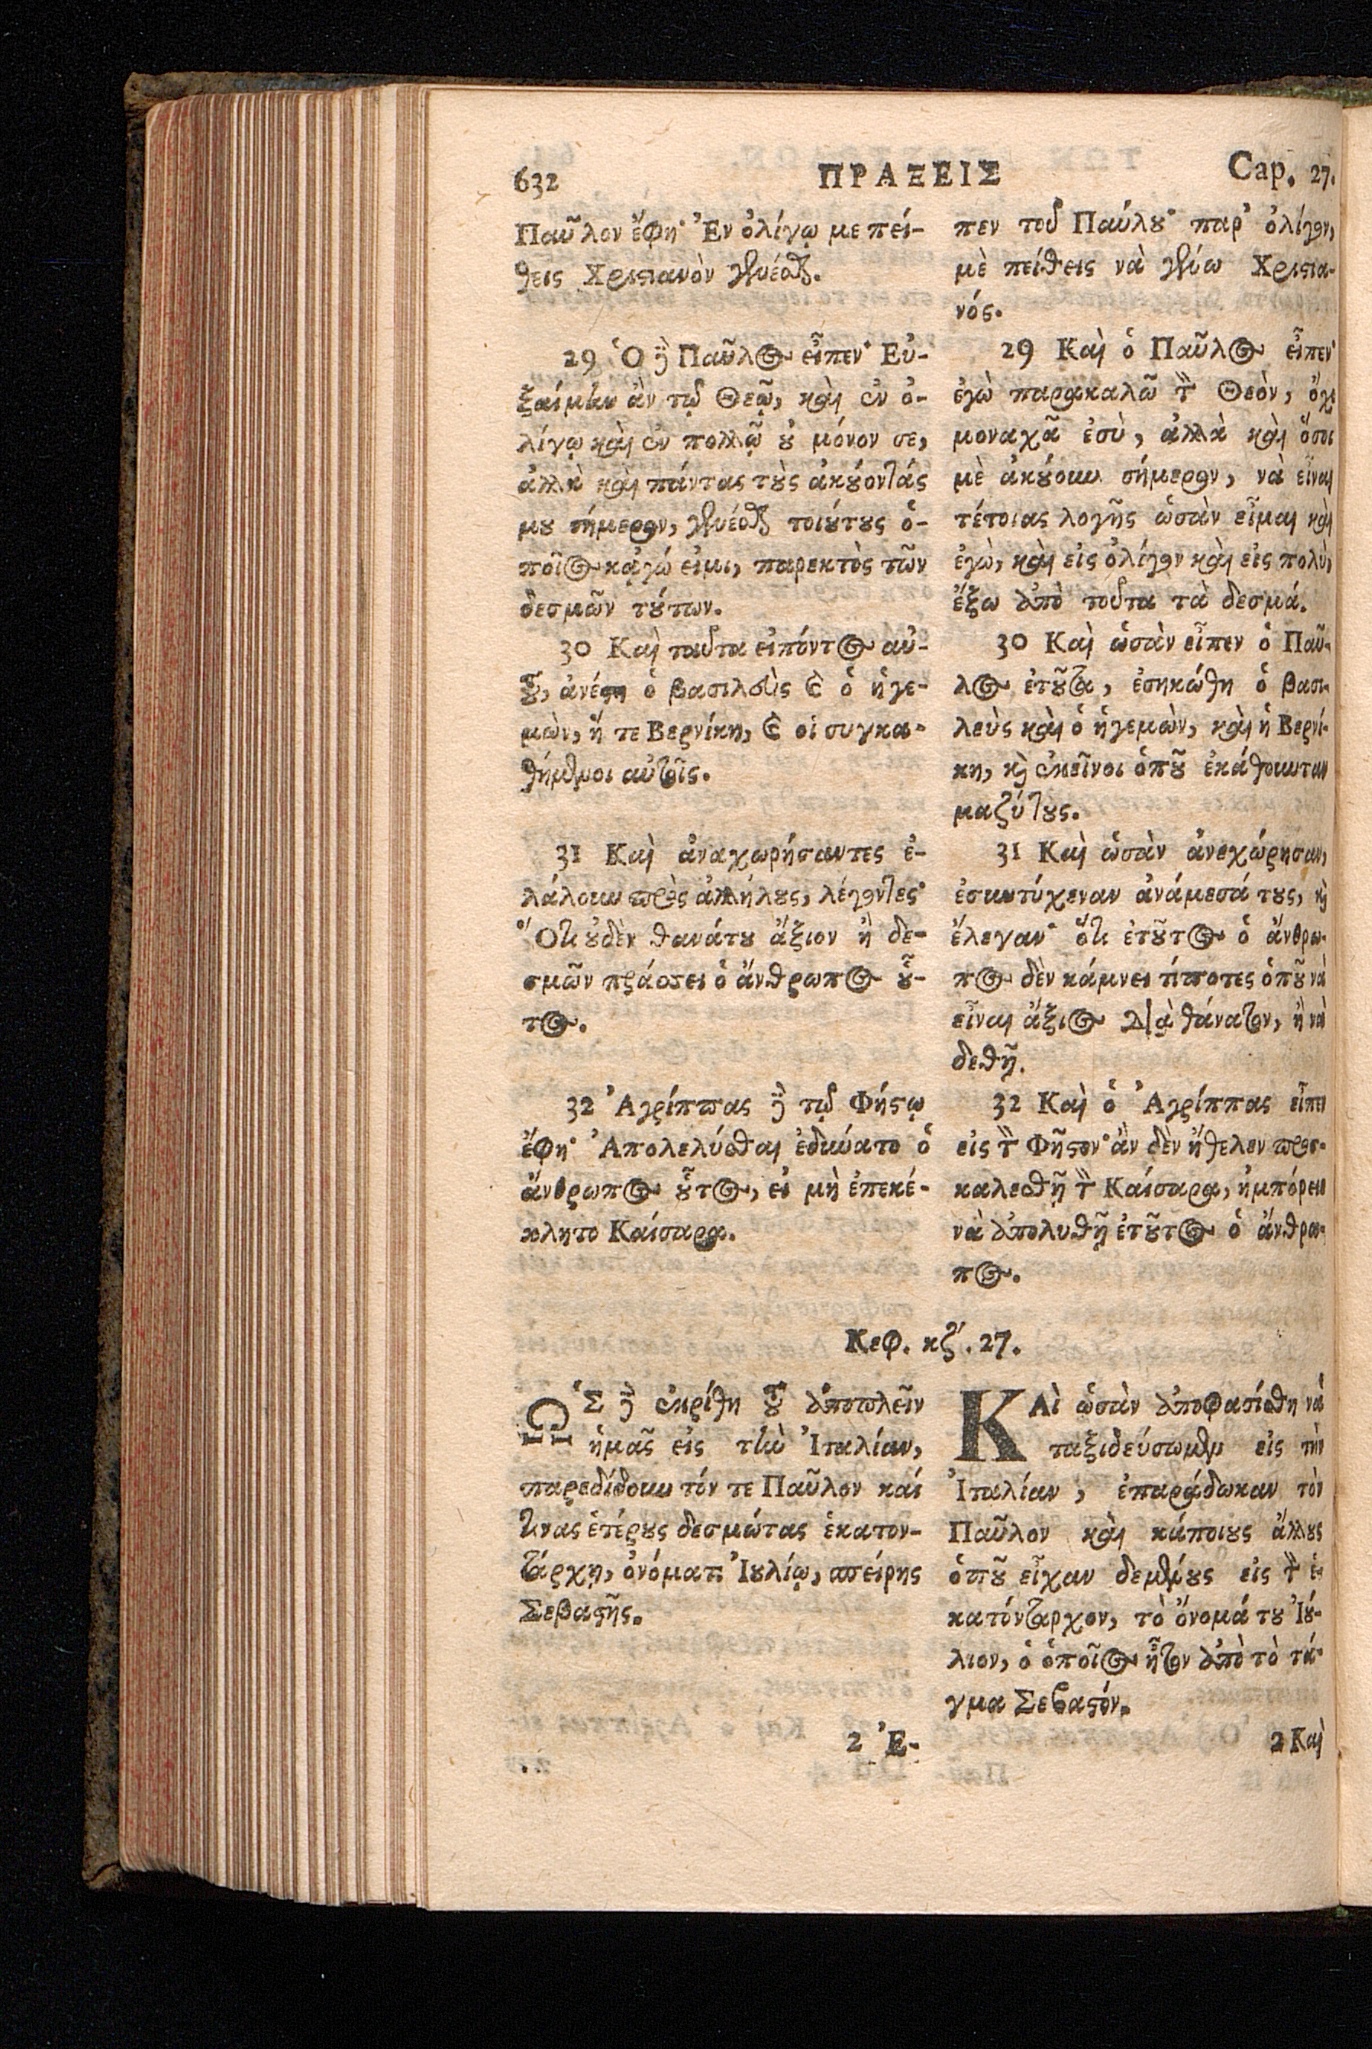 632 ΠΡΑΞΕΙΣ Cap. 27.
Παῦλον ἔφη· Ἐν ὀλίγῳ με πεί-
θεις Χριστιανὸν γενέσθαι.
29 Ὁ δὲ Παῦλος εἶπεν· Εὐ-
ξαίμην ἂν τῷ Θεῷ, καὶ ἐν ὀ-
λίγῳ καὶ ἐν πολλῷ οὐ μόνον σε,
ἀλλὰ καὶ πάντας τοὺς ἀκούοντάς
μου σήμερον, γενέσθαι τοιούτους ὁ-
ποῖος κᾀγώ εἰμι, παρεκτὸς τῶν
δεσμῶν τούτων.
30 Καὶ ταῦτα εἰπόντος αὐ-
τοῦ, ἀνέστη ὁ βασιλεὺς καὶ ὁ ἡγε-
μὼν, ἥ τε Βερνίκη, καὶ οἱ συγκα-
θήμενοι αὐτοῖς.
31 Καὶ ἀναχωρήσαντες ἐ-
λάλουν πρὸς ἀλλήλους, λέγοντες·
Ὅτι οὐδὲν θανάτου ἄξιον ἢ δε-
σμῶν πράσσει ὁ ἄνθρωπος οὗ-
τος.
32 Ἀγρίππας δὲ τῷ Φήστῳ
ἔφη· Ἀπολελύσθαι ἐδύνατο ὁ
ἄνθρωπος οὗτος, εἰ μὴ ἐπεκέ-
κλητο Καίσαρα.
πεν τοῦ Παύλου· παρ' ὀλίγον,
μὲ πείθεις νὰ γένω Χριστια-
νός.
29 Καὶ ὁ Παῦλος εἶπεν·
ἐγὼ παρακαλῶ τὸν Θεὸν, ὄχι
μοναχᾶ ἐσὺ, ἀλλὰ καὶ ὅσοι
μὲ ἀκούουν σήμερον, νὰ εἶναι
τέτοιας λογῆς ὡσὰν εἶμαι καὶ
ἐγὼ, καὶ εἰς ὀλίγον καὶ εἰς πολὺ,
ἔξω ἀπὸ τοῦτα τὰ δεσμά.
30 Καὶ ὡσὰν εἶπεν ὁ Παῦ-
λος ἐτοῦτα, ἐσηκώθη ὁ βασι-
λεὺς καὶ ὁ ἡγεμὼν, καὶ ἡ Βερνί-
κη, καὶ ἐκεῖνοι ὁποῦ ἐκάθουνταν
μαζύ τους.
31 Καὶ ὡσὰν ἀνεχώρησαν,
ἐσυντύχεναν ἀνάμεσά τους, καὶ
ἔλεγαν· ὅτι ἐτοῦτος ὁ ἄνθρω-
πος δὲν κάμνει τίποτες ὁποῦ νὰ
εἶναι ἄξιος διὰ θάνατον, ἢ νὰ
δεθῇ.
32 Καὶ ὁ Ἀγρίππας εἶπεν
εἰς τὸν Φῆστον· ἂν δὲν ἤθελεν προσ-
καλεσθῇ τὸν Καίσαρα, ἠμπόρειε
νὰ ἀπολυθῇ ἐτοῦτος ὁ ἄνθρω-
πος.
Κεφ. κζ΄. 27.
ὩΣ δὲ ἐκρίθη τοῦ ἀποπλεῖν
ἡμᾶς εἰς τὴν Ἰταλίαν,
παρεδίδουν τόν τε Παῦλον καί
τινας ἑτέρους δεσμώτας ἑκατον-
τάρχῃ, ὀνόματι Ἰουλίῳ, σπείρης
Σεβαστῆς.
ΚΑὶ ὡσὰν ἀποφασίσθη νὰ
ταξιδεύσωμεν εἰς τὴν
Ἰταλίαν, ἐπαράδωκαν τὸν
Παῦλον καὶ κάποιους ἄλλους
ὁποῦ εἶχαν δεμένους εἰς τὸν ἑ-
κατόνταρχον, τὸ ὄνομά του Ἰού-
λιον, ὁ ὁποῖος ἦτον ἀπὸ τὸ τά-
γμα Σεβαστόν.
2 Ἐ- 2 Καὶ